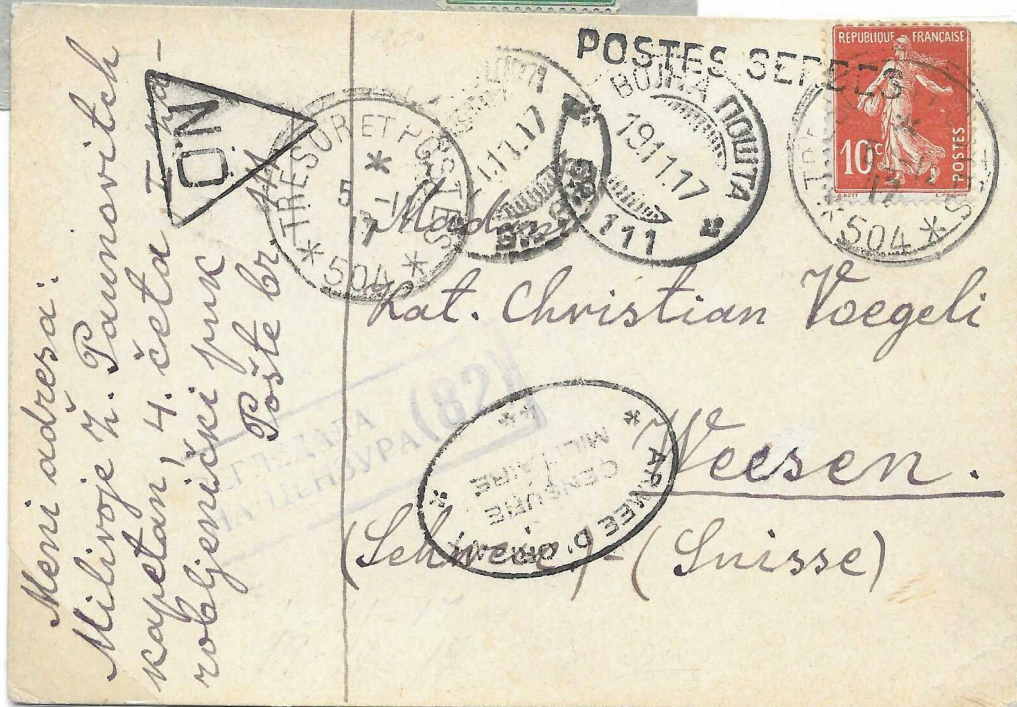 POSTES SERBES
REPUBLIQUE FRANÇAISE
10c
POSTES
TRESOR ET POSTES
504
ВОЈНА ПОШТА
19.11.17
111
ПОШТА
.11.17
TRESOR ET POSTES
5 -11
504
N.D
Kat. Christian Voegeli
Weesen.
(Schweiz) - (Suisse)
ARMEE D'ORIENT
CENSURE
MILITAIRE
(82)
ЦЕНЗУРА
Meni adresa:
Milivoje Ž. Paunovitch
kapetan, 4. četa
puk
Pošte br. 111